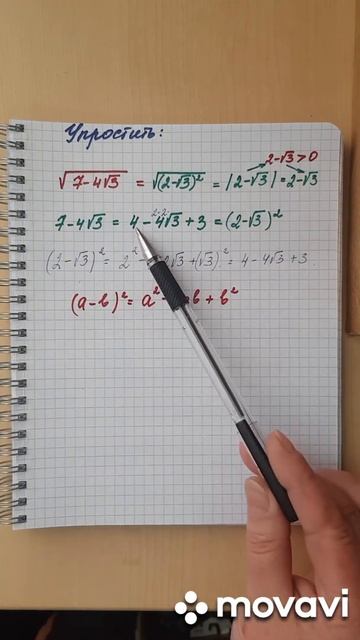 Упростить:
2-√3>0
√7-4√3 = √(2-√3)² = |2-√3| = 2-√3
2·2
7-4√3 = 4-4√3+3 = (2-√3)²
(2-√3)² = 2² - 2√3 + (√3)² = 4-4√3+3
(a-b)² = a² b + b²
movavi